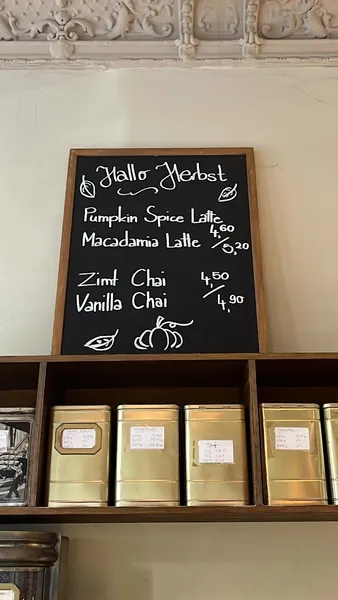 Hallo Herbst
Pumpkin Spice Latte
Macadamia Latte 4,60/5,20
Zimt Chai 4,50/
Vanilla Chai 4,90